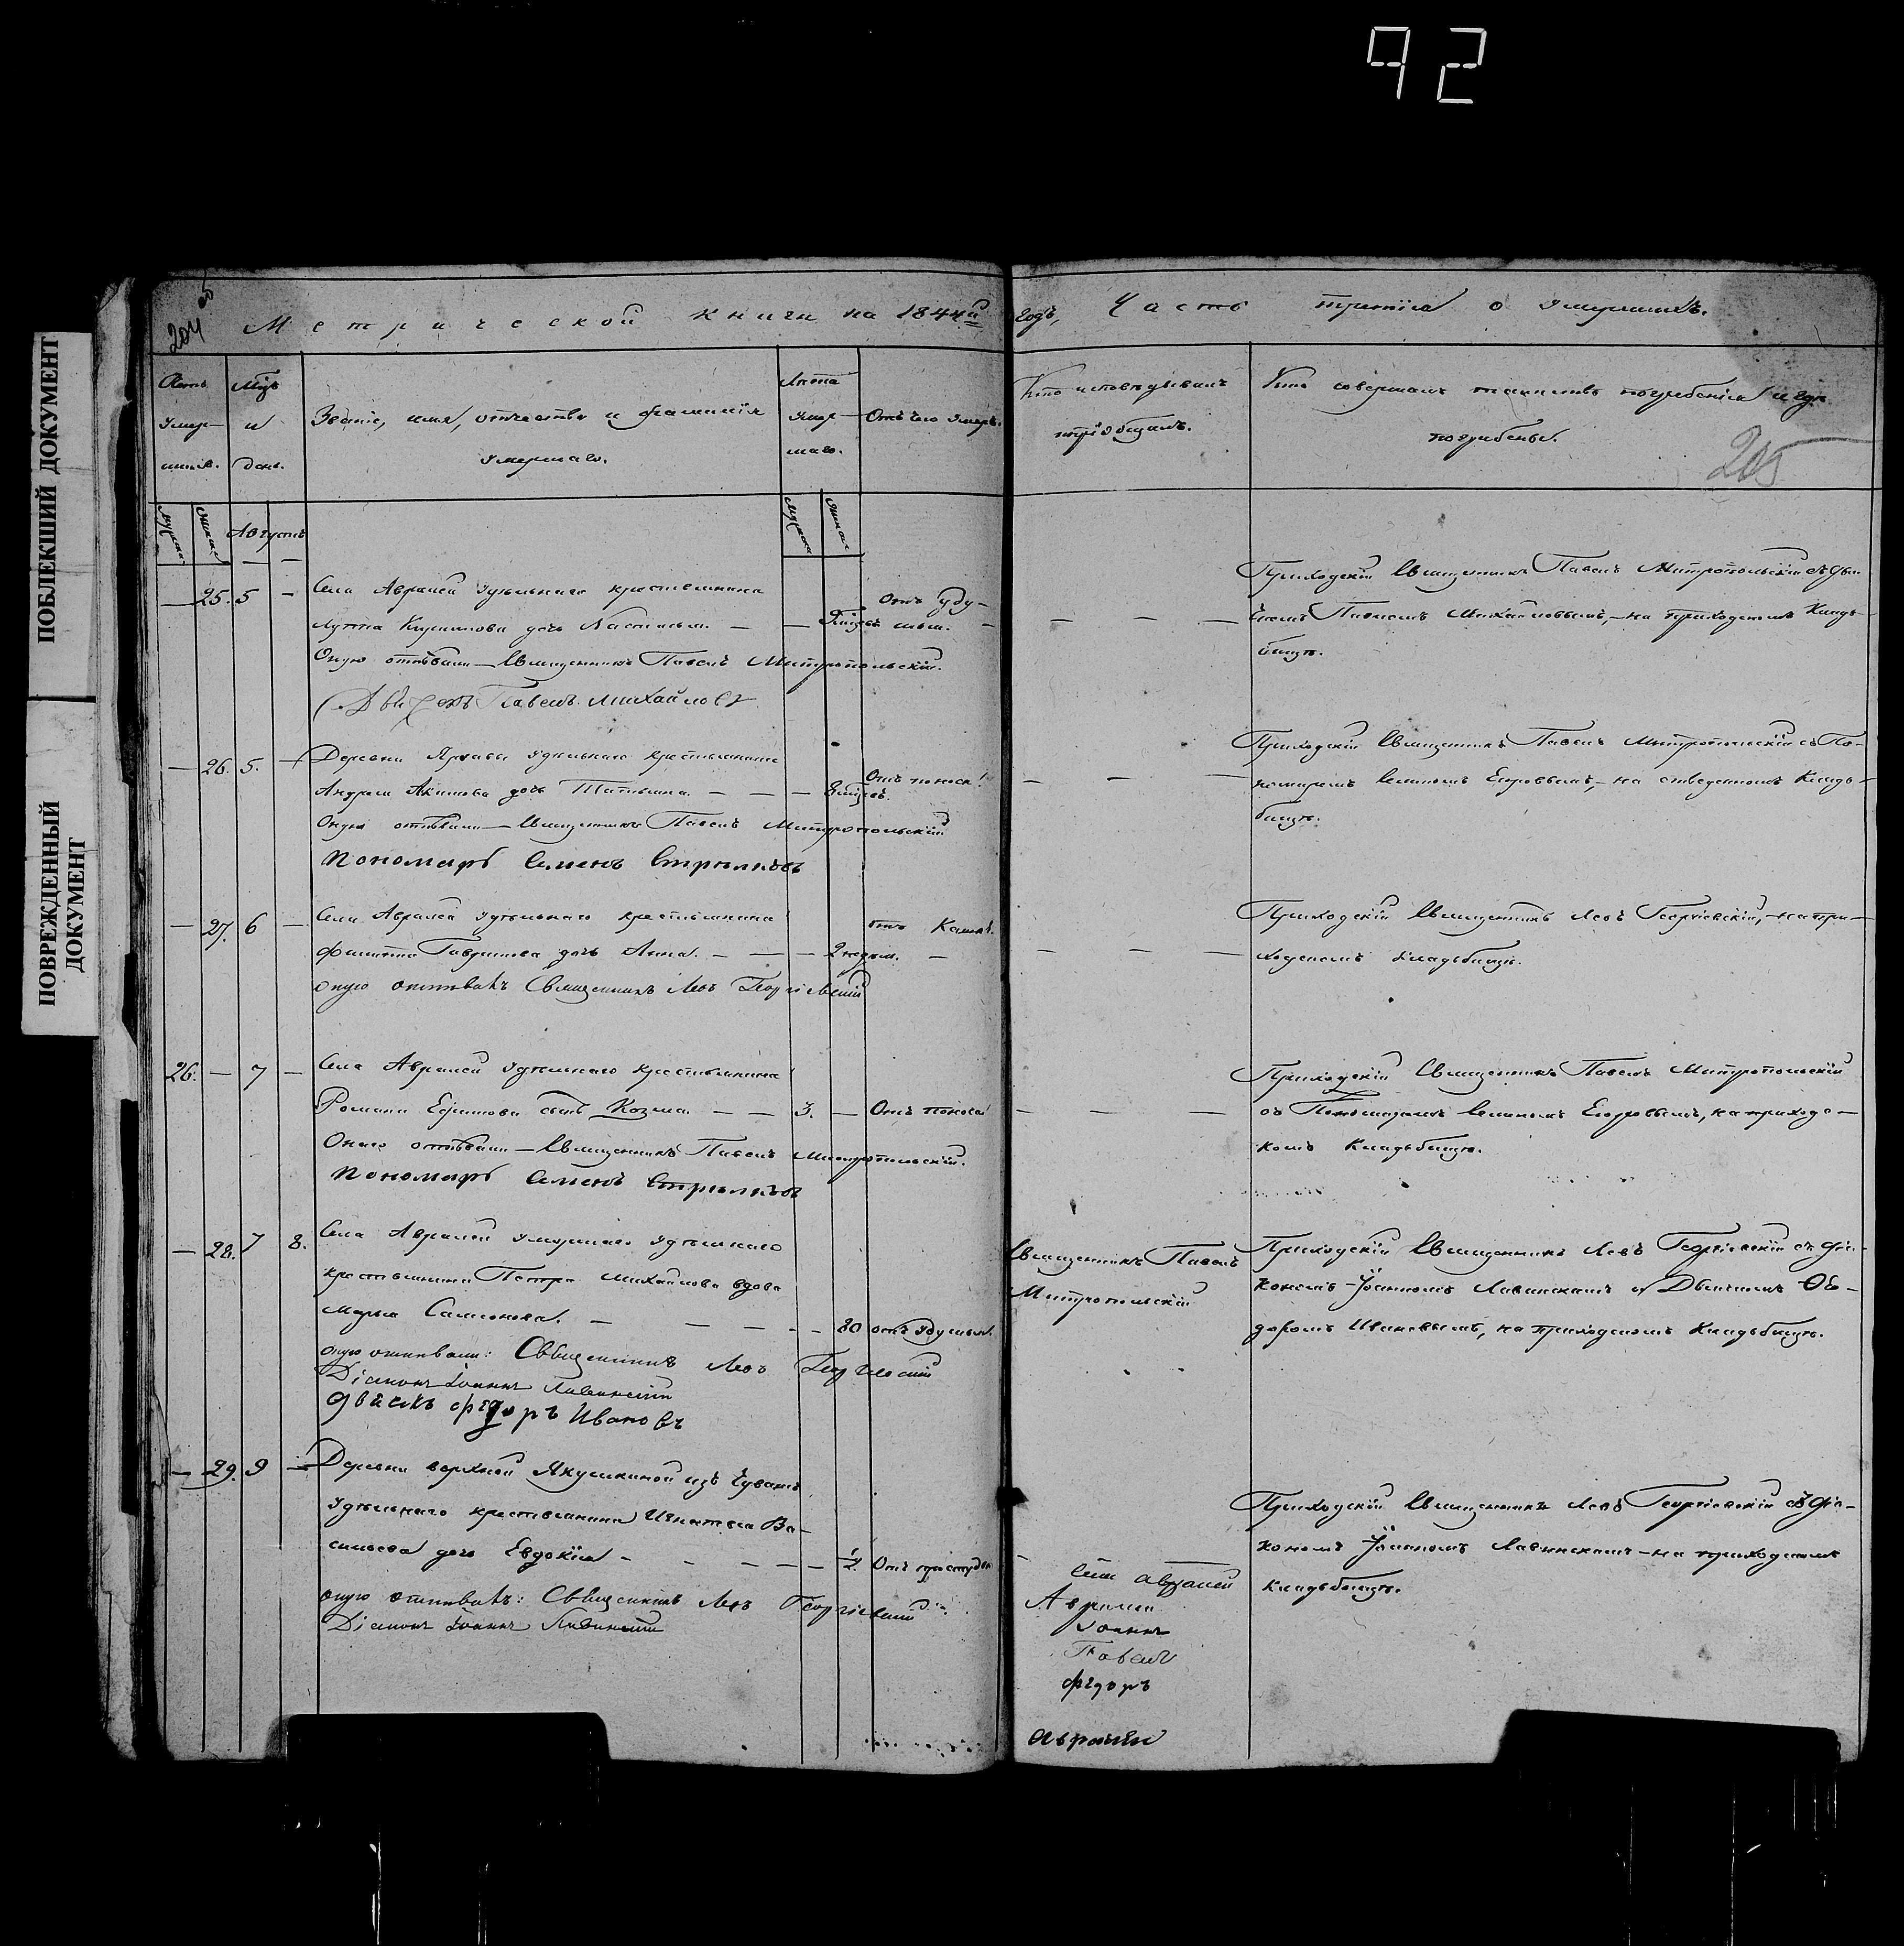 92
ПОБЛЕКШИЙ ДОКУМЕНТ
ПОВРЕЖДЕННЫЙ
ДОКУМЕНТ
204
Метрической книги на 1844й
годъ, Часть третiя о умершихъ.
205
Счетъ умершихъ.
Мцъ и день.
Званiе, имя, отчество и фамилiя
умершаго.
Лѣта умершаго.
Отъ чего умеръ.
Кто исповѣдывалъ
и прiобщалъ.
Кто совершалъ таинство погребенiя и гдѣ
погребены.
Августъ
— 25. 5 —
Села Авралей удѣльнаго крестьянина
Кирилова дочь Настасья. —
Отъ уду-
шья.
Оную отпѣвали — Священникъ Павелъ Митропольскiй.
Дьячекъ Павелъ Михайловъ
Приходскiй Священникъ Павелъ Митропольскiй съ Дья-
чкомъ Павломъ Михайловымъ, — на приходскомъ Кладъ-
бищѣ.
— 26. 5. —
Деревни удѣльнаго крестьянина
Андрея Акимова дочь Татьяна. — — — 8 мѣсяцъ.
Отъ поноса
Оную отпѣвали — Священникъ Павелъ Митропольскiй
Пономарь Семенъ Стрѣлковъ
Приходскiй Священникъ Павелъ Митропольскiй съ По-
номаремъ Семеномъ Егоровымъ, — на отведенномъ Кладъ-
бищѣ.
— 27. 6 —
Села Авралей удѣльнаго крестьянина
Филиппа Гаврилова дочь Анна. — — — 2 недѣли. —
отъ Кашля.
оную отпѣвалъ Священникъ Левъ Георгiевскiй
Приходскiй Священникъ Левъ Георгiевскiй, — на при-
ходскомъ кладъбищѣ.
26. — 7 —
Села Авралей удѣльнаго крестьянина
Романа Ефимова сынъ Козма — — 3. — Отъ поноса
Онаго отпѣвали — Священникъ Павелъ Митропольскiй.
Пономарь Семенъ Стрѣлковъ
Приходскiй Священникъ Павелъ Митропольскiй
съ Пономаремъ Семеномъ Егоровымъ, на приходс-
комъ Кладъбищѣ.
— 28. 7 8.
Села Авралей умершаго удѣльнаго
крестьянина Петра Михайлова вдова
Марья Самсонова. — — — 80 отъ удушья.
оную отпѣвали: Священникъ Левъ Георгiевскiй
Дiаконъ Iоаннъ Лавинскiй
дьячекъ Федоръ Ивановъ
Священникъ Павелъ
Митропольскiй
Приходскiй Священникъ Левъ Георгiевскiй съ Дiа-
кономъ Iоанномъ Лавинскимъ и Дьячкомъ Ѳе-
доромъ Ивановымъ, на приходскомъ Кладъбищѣ.
— 29. 9 —
Деревни верхней Якушкиной изъ Чувашъ
удѣльнаго крестьянина Игнатья Ва-
сильева дочь Евдокiя — — — — ½. Отъ простуды
оную отпѣвалъ: Священникъ Левъ Георгiевскiй
Дiаконъ Iоаннъ Лавинскiй
Приходскiй Священникъ Левъ Георгiевскiй съ Дiа-
кономъ Iоанномъ Лавинскимъ — на приходскомъ
кладъбищѣ.
села Авралей
Авралей
Iоаннъ
Павелъ
федоръ
Авралей